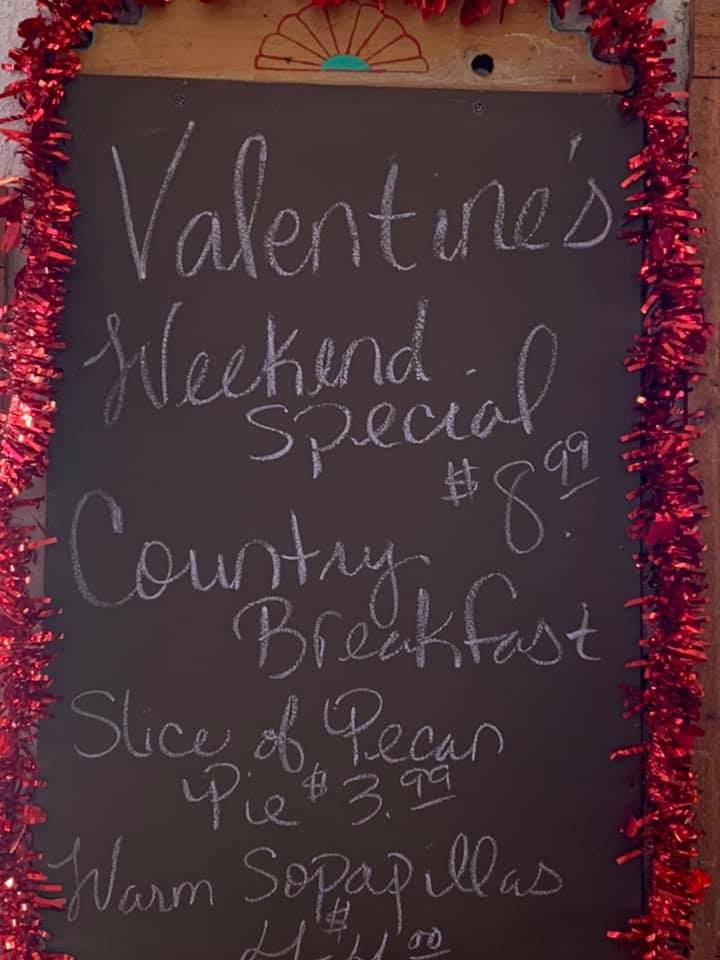 Valentine's
Weekend
Special
$8.99
Country
Breakfast
Slice of Pecan
Pie $3.99
Warm Sopapillas
$